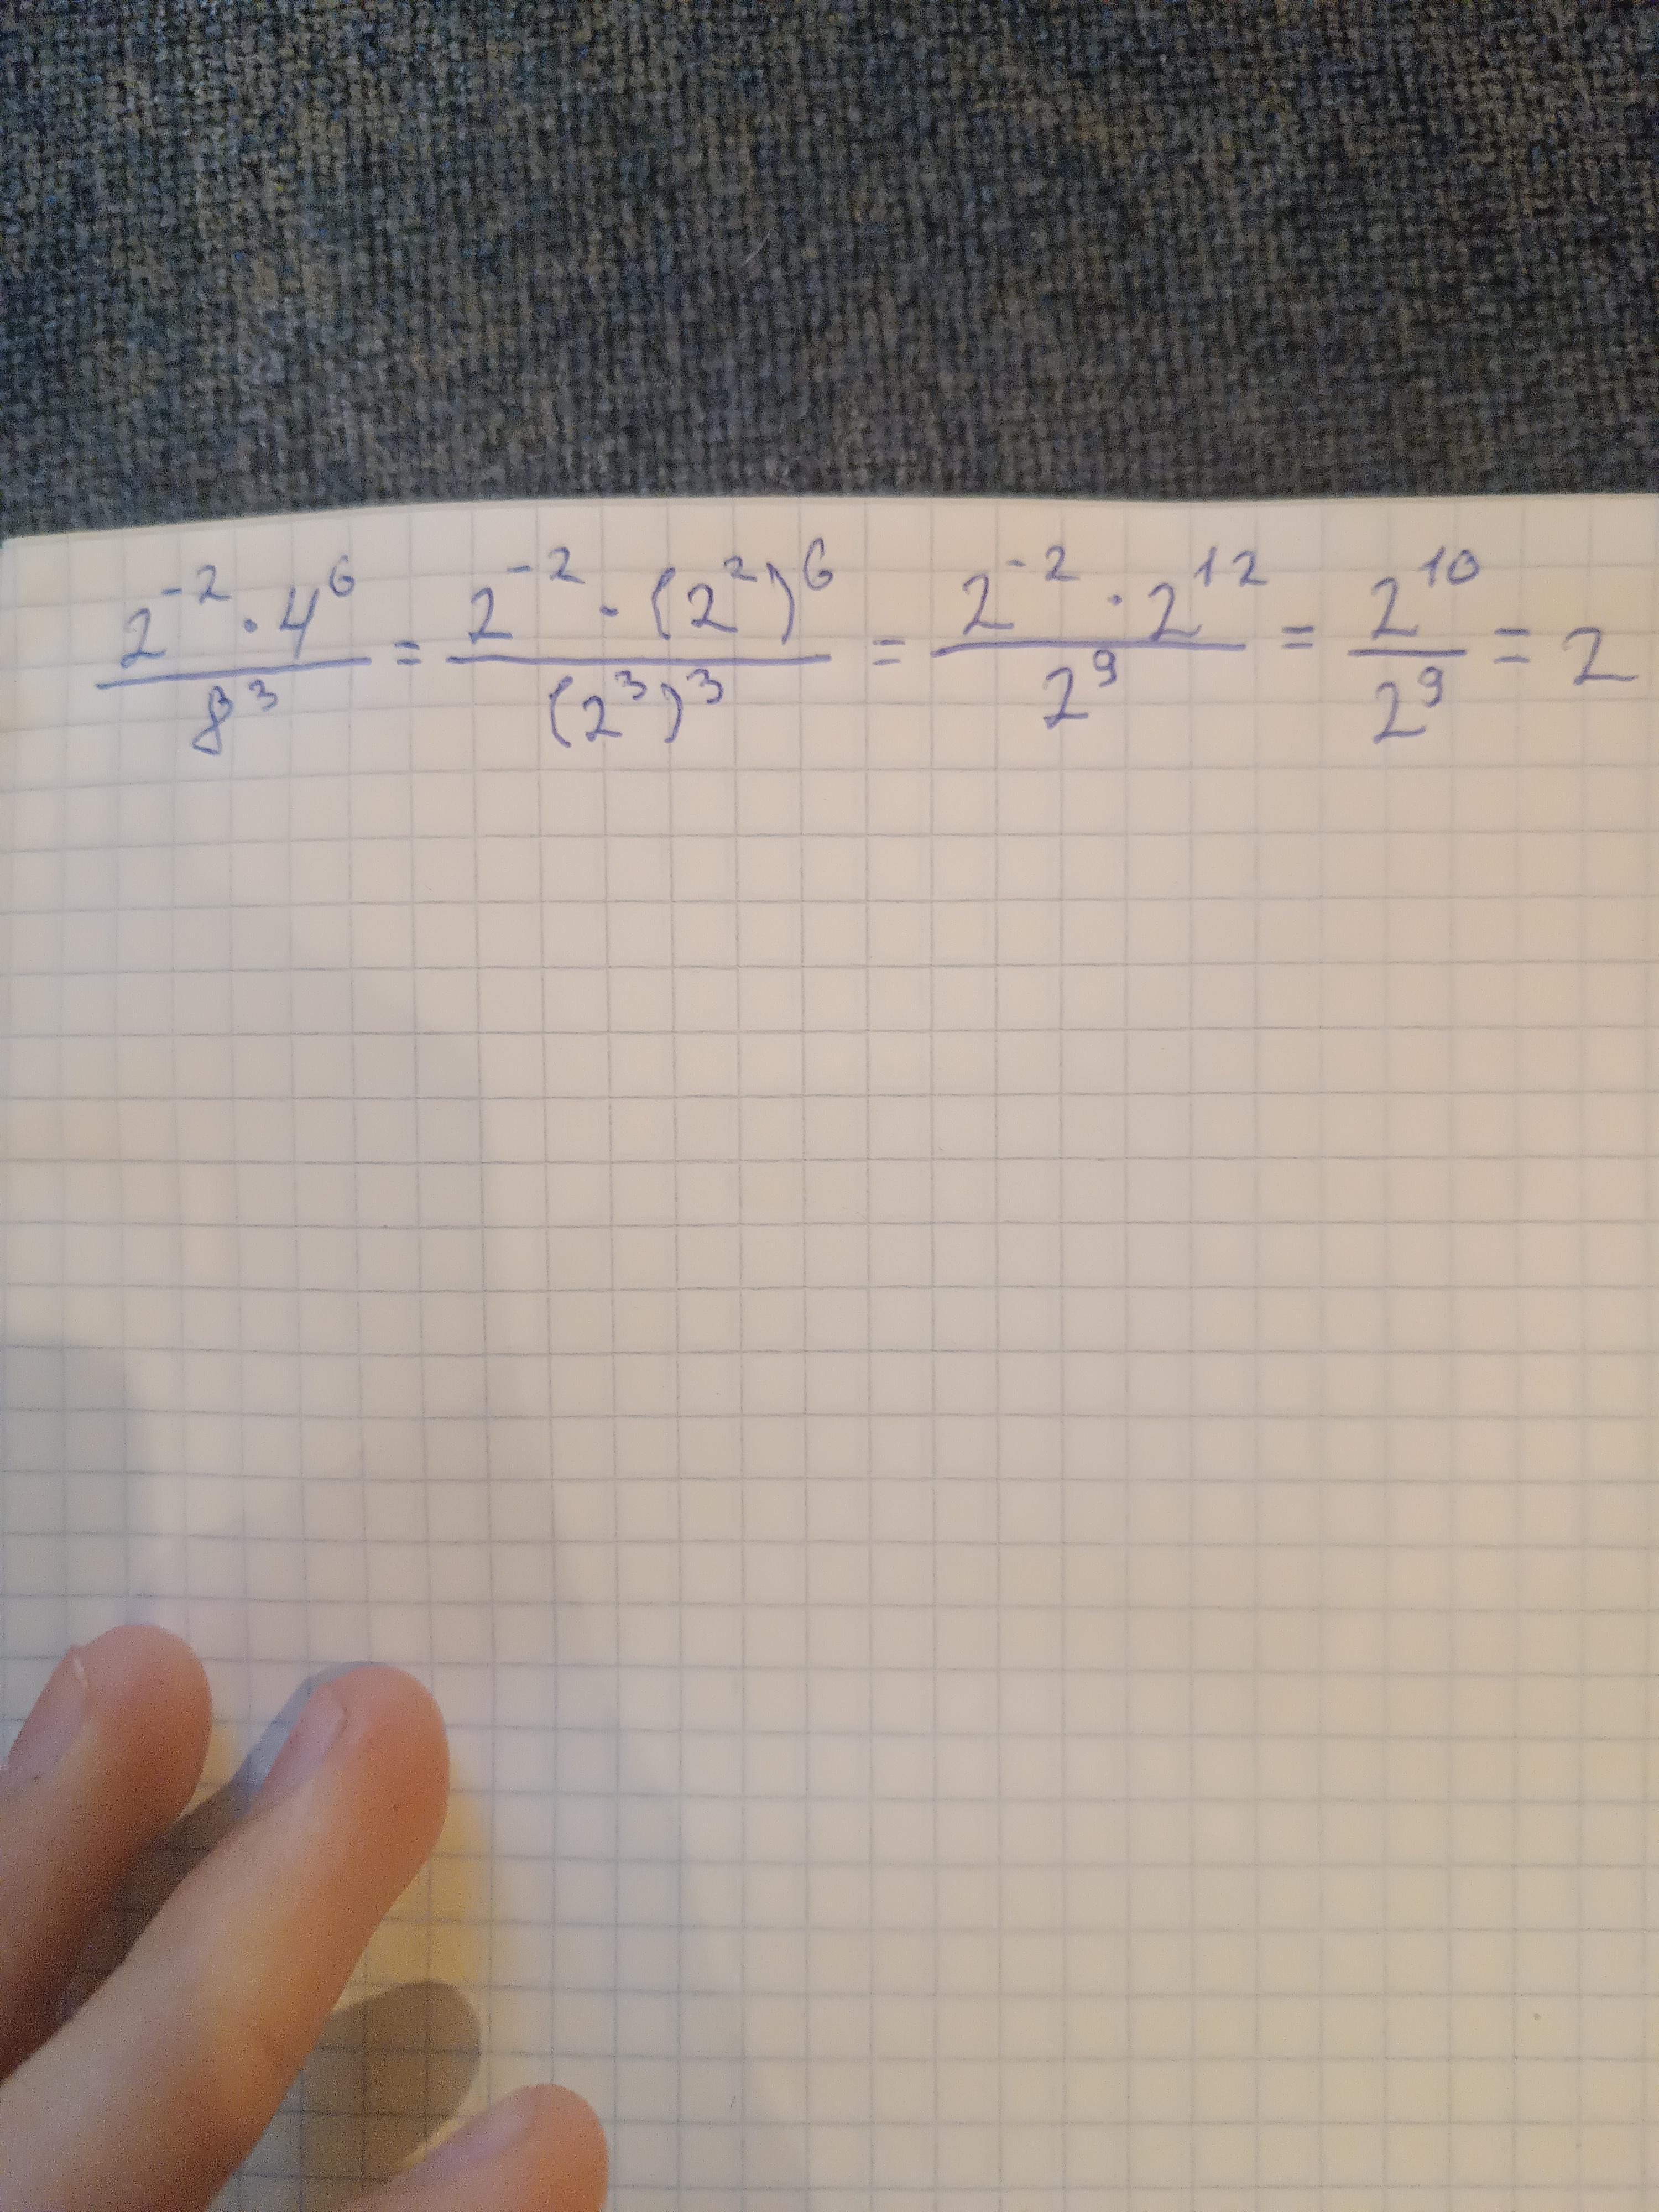 \frac{2^{-2} \cdot 4^6}{8^3} = \frac{2^{-2} \cdot (2^2)^6}{(2^3)^3} = \frac{2^{-2} \cdot 2^{12}}{2^9} = \frac{2^{10}}{2^9} = 2